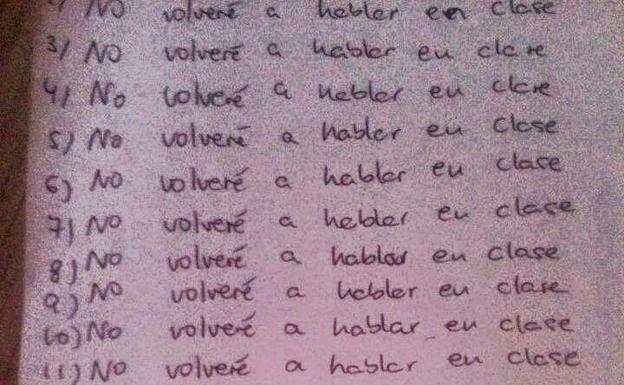 2) No volveré a hablar en clase
3) No volveré a hablar en clase
4) No volveré a hablar en clase
5) No volveré a hablar en clase
6) No volveré a hablar en clase
7) No volveré a hablar en clase
8) No volveré a hablar en clase
9) No volveré a hablar en clase
10) No volveré a hablar en clase
11) No volveré a hablar en clase